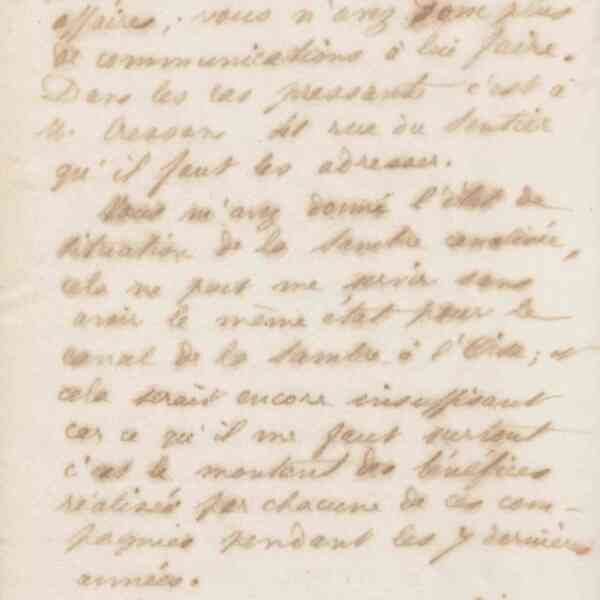 affaires, vous n'avez donc plus
de communications à lui faire.
Dans les cas pressants c'est à
M. rue du Sentier
qu'il faut les adresser.
Vous m'avez donné l'état de
situation de la Sambre canalisée,
cela ne peut me servir sans
avoir le même état pour le
canal de la Sambre à l'Oise; et
cela serait encore insuffisant
car ce qu'il me faut surtout
c'est le montant des bénéfices
réalisés par chacune de ces com-
pagnies pendant les 7 dernières
années.